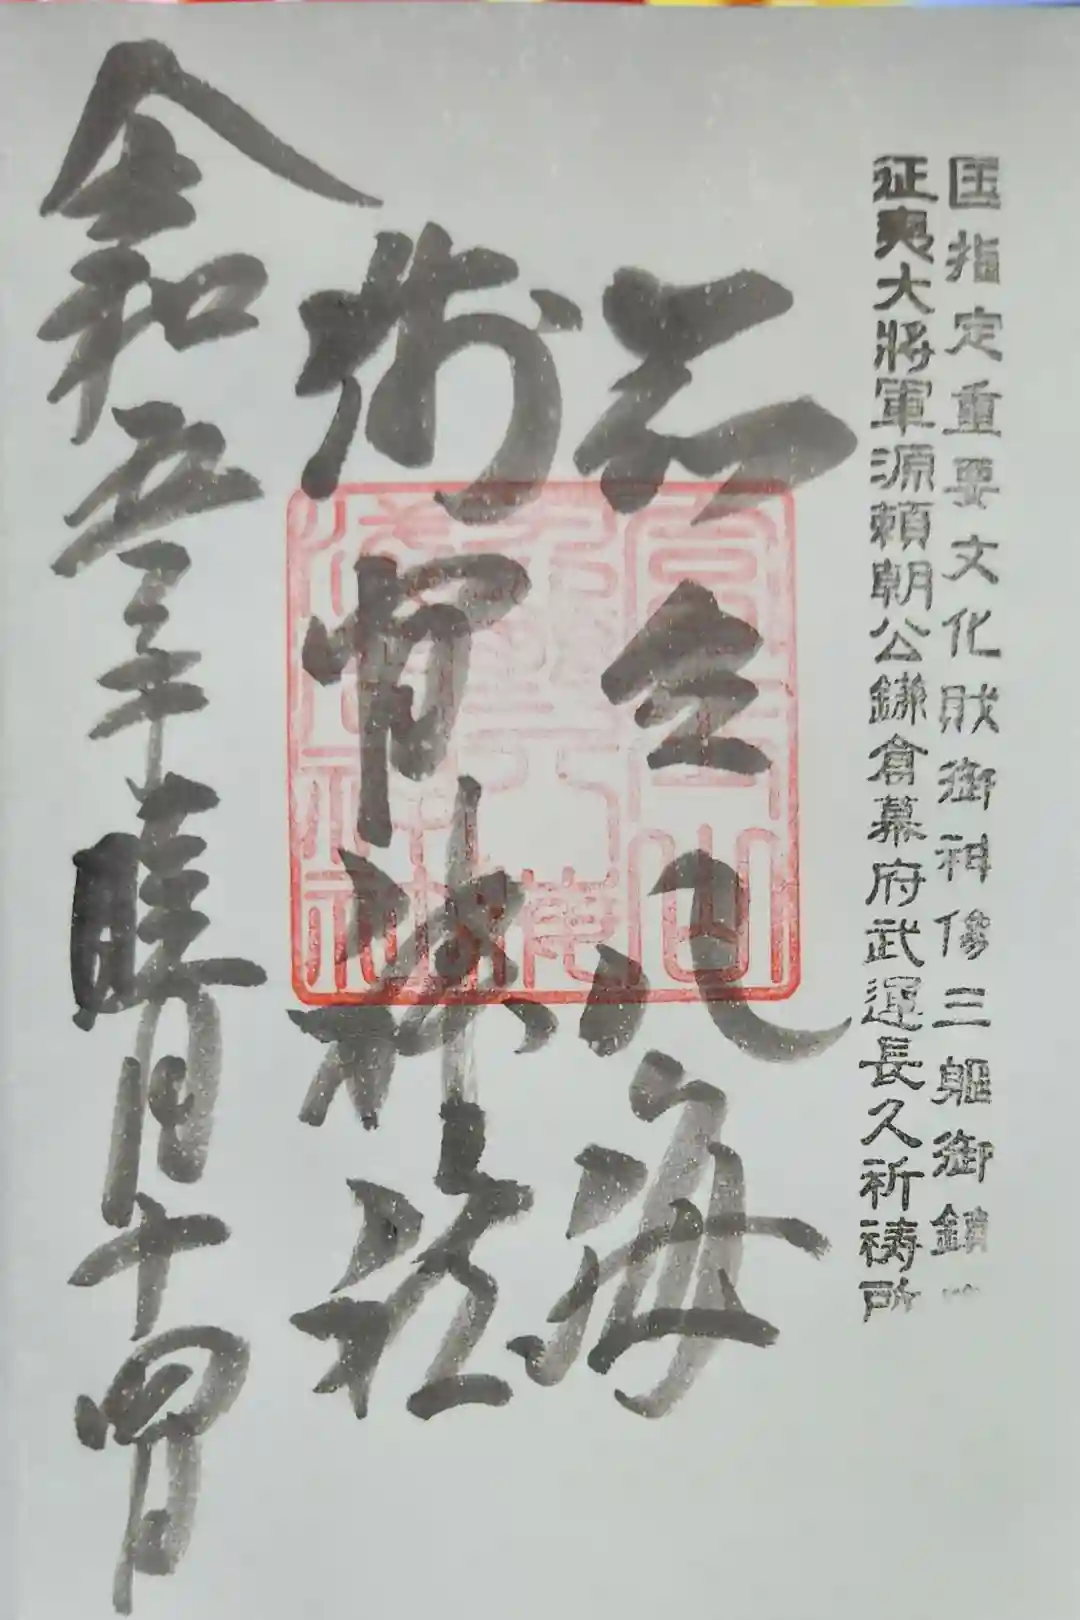 国指定重要文化財御神像三軀御鎮
征夷大將軍源頼朝公鎌倉幕府武運長久祈祷所
忍野八海
浅間神社
令和五年睦月十四日